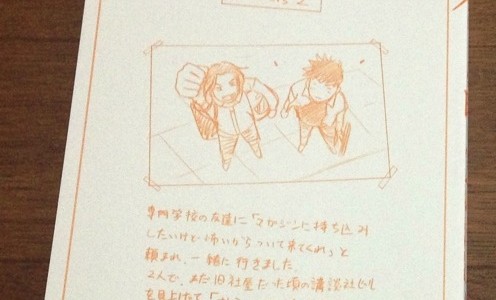 専門学校の友達に「マガジンに持ち込み
したいけど怖いからついて来てくれ」と
頼まれ、一緒に行きました。
2人で、まだ旧社屋だった頃の講談社ビル
を見上げて